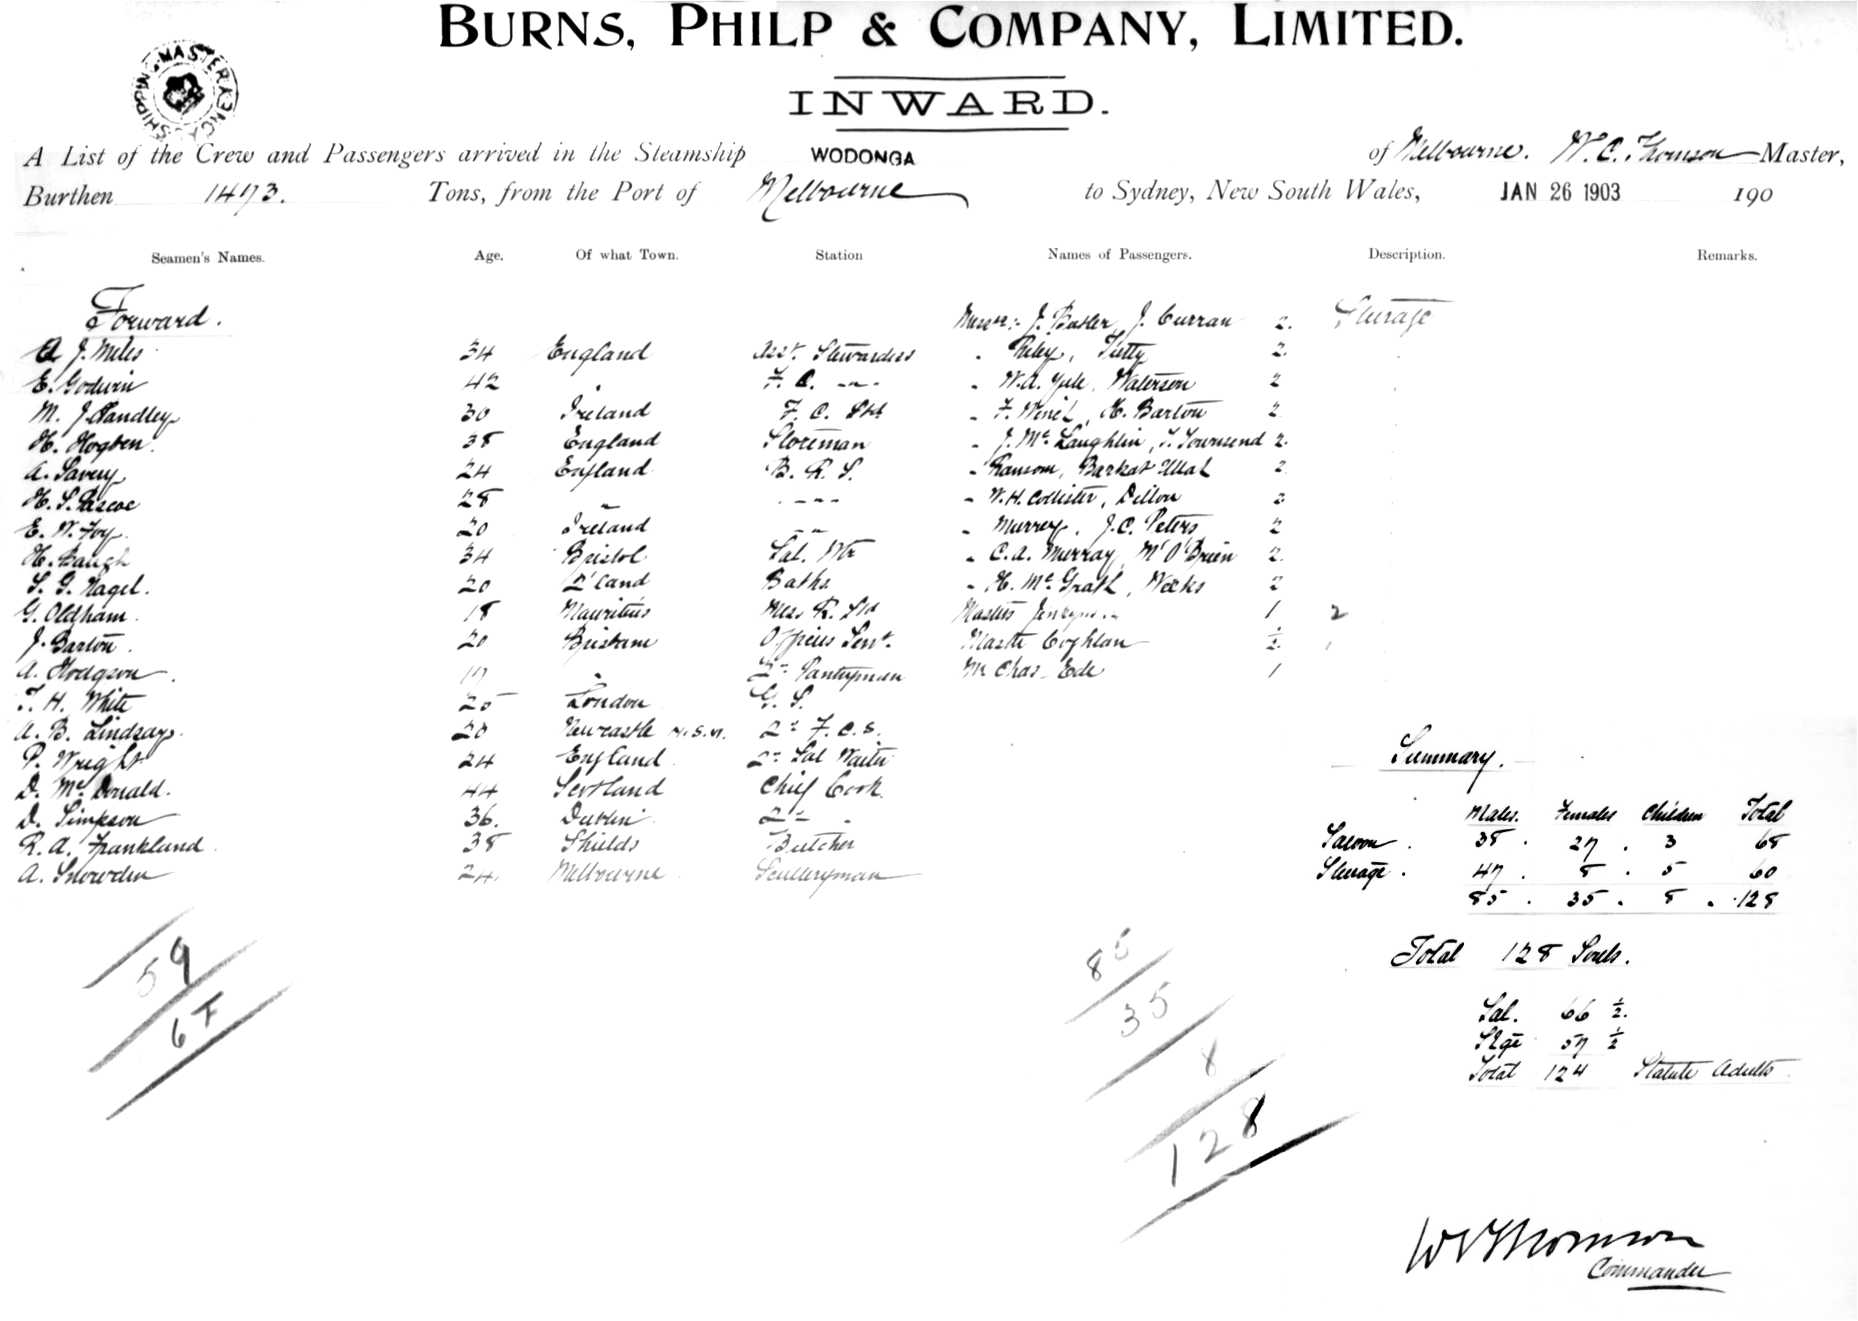 BURNS, PHILP & COMPANY, LIMITED.
SHIPPING MASTER SYDNEY
INWARD.
A List of the Crew and Passengers arrived in the Steamship WODONGA of Melbourne. W. C. Thomson Master,
Burthen 1473. Tons, from the Port of Melbourne to Sydney, New South Wales, JAN 26 1903 190
Seamen's Names. Age. Of what Town. Station Names of Passengers. Description. Remarks.
Forward. Messrs:- J. Butler, J. Curran 2. Steerage
J. Miles 34 England Asst. Stewardess " Riley, Tutty 2.
E. Godwin 42 " F. C. " " W. A. Yule, Waterson 2
M. J. Handley 30 Ireland F. C. " H. Barton 2
H. Hogben. 38 England Storeman " J. McLaughlin, T. Townsend 2.
A. Savery 24 England B. R. S. " Ransom, Barkat Ullah 2
H. S. Pascoe 28 " " " W. H. Collister, Dillon 2
E. W. Foy. 20 Ireland " " Murray, J. C. Peters 2
H. Baugh 34 Bristol Sal. Wtr " C. A. Murray, M O'Brien 2.
S. G. Nagel. 20 Q'land Baths " H. McGrath, Weeks 2
G. Oldham. 18 Mauritius Mess R. Std Masters 1 2
J. Barton. 20 Brisbane Officers Servt. Master Coghlan ½ 1
A. Hodgson. 17 " 2nd Pantryman Mr Chas. Ede 1
T. H. White 25 London G. S.
A. B. Lindsay. 20 Newcastle N.S.W. 2nd F.C.S.
P. Wright 24 England 2nd Sal Waiter
D. McDonald. 44 Scotland Chief Cook
D. Simpson 36. Dublin 2nd "
R. A. Frankland 38 Shields Butcher
A. Snowden 24. Melbourne Sculleryman
Summary.
Males. Females Children Total
Saloon. 38. 27. 3 68
Steerage. 47. 8. 5 60
85. 35. 8. 128
Total 128 Souls.
Sal. 66 ½.
Stge 57 ½
Total 124 Statute Adults
59
67
85
35
8
128
W C Thomson
Commander